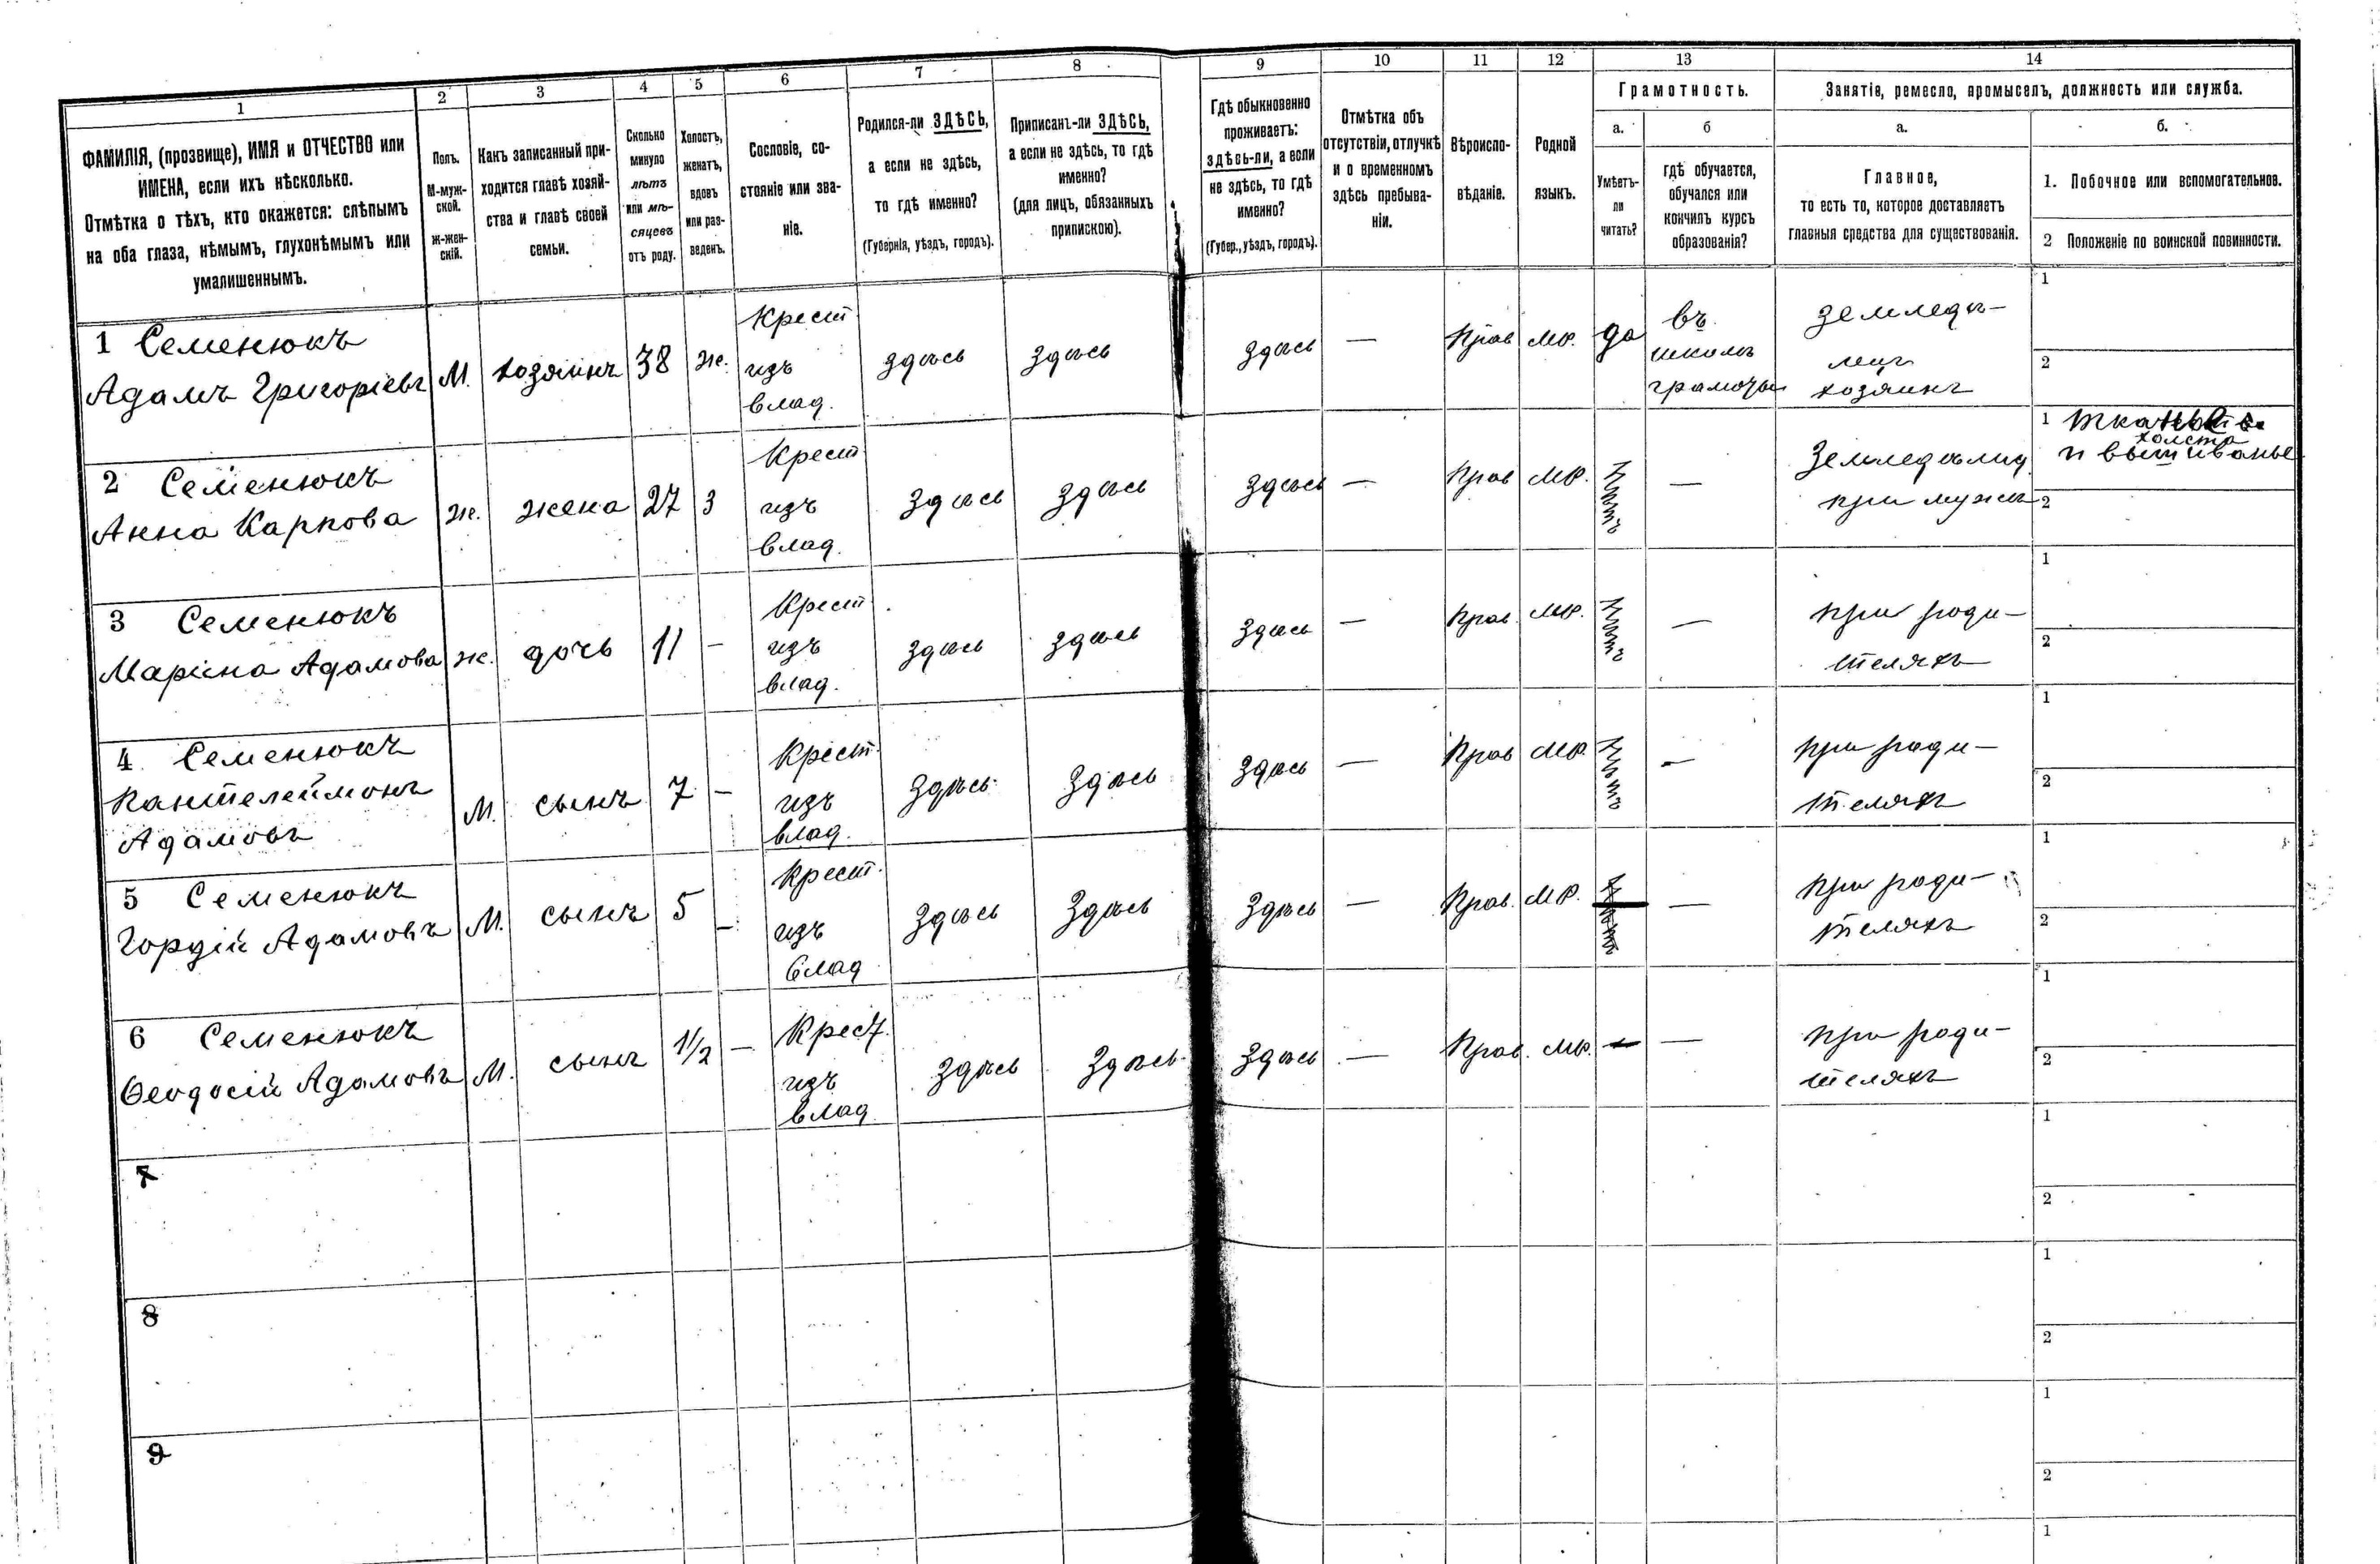 1
2
3
4
5
6
7
8
9
10
11
12
13
14
ФАМИЛІЯ, (прозвище), ИМЯ и ОТЧЕСТВО или
ИМЕНА, если ихъ нѣсколько.
Отмѣтка о тѣхъ, кто окажется: слѣпымъ
на оба глаза, нѣмымъ, глухонѣмымъ или
умалишеннымъ.
Полъ.
М-муж-
ской.
ж-жен-
скій.
Какъ записанный при-
ходится главѣ хозяй-
ства и главѣ своей
семьи.
Сколько
минуло
лѣтъ
или мѣ-
сяцевъ
отъ роду.
Холостъ,
женатъ,
вдовъ
или раз-
веденъ.
Сословіе, со-
стояніе или зва-
ніе.
Родился-ли ЗДѢСЬ,
а если не здѣсь,
то гдѣ именно?
(Губернія, уѣздъ, городъ).
Приписанъ-ли ЗДѢСЬ,
а если не здѣсь, то гдѣ
именно?
(для лицъ, обязанныхъ
припискою).
Гдѣ обыкновенно
проживаетъ:
здѣсь-ли, а если
не здѣсь, то гдѣ
именно?
(Губер., уѣздъ, городъ).
Отмѣтка объ
отсутствіи, отлучкѣ
и о временномъ
здѣсь пребыва-
ніи.
Вѣроиспо-
вѣданіе.
Родной
языкъ.
Грамотность.
а.
Умѣетъ-
ли
читать?
б
гдѣ обучается,
обучался или
кончилъ курсъ
образованія?
Занятіе, ремесло, промыселъ, должность или служба.
а.
Главное,
то есть то, которое доставляетъ
главныя средства для существованія.
б.
1. Побочное или вспомогательное.
2 Положеніе по воинской повинности.
1 Семенюкъ
Адамъ Григорьевъ
М.
хозяинъ
38
же.
Крест
изъ
влад.
здѣсь
здѣсь
здѣсь
—
Прав
мр.
да
въ
школѣ
грамоты
земледѣ-
лецъ
хозяинъ
1
2
2 Семенюкъ
Анна Карпова
же.
жена
27
З
Крест
изъ
влад.
здѣсь
здѣсь
здѣсь
—
Прав
мр.
нѣтъ
—
Земледѣлиц
при мужѣ
1 тканье
холста
и вышиванье
2
3 Семенюкъ
Маріна Адамова
же.
дочь
11
–
Крест
изъ
влад.
здѣсь
здѣсь
здѣсь
—
Прав.
мр.
нѣтъ
—
при роди-
теляхъ
1
2
4 Семенюкъ
Пантелеймонъ
Адамовъ
М.
сынъ
7
–
Крест.
изъ
влад.
здѣсь
здѣсь
здѣсь
—
Прав
мр.
нѣтъ
—
при роди-
теляхъ
1
2
5 Семенюкъ
Гордій Адамовъ
М.
сынъ
5
–
Крест.
изъ
влад
здѣсь
здѣсь
здѣсь
—
Прав.
мр.
—
при роди-
теляхъ
1
2
6 Семенюкъ
Ѳеодосій Адамовъ
М.
сынъ
1/2
—
Крест.
изъ
влад
здѣсь
здѣсь
здѣсь
—
Прав.
мр.
—
—
при роди-
теляхъ
1
2
7
1
2
8
1
2
9
1
2
1